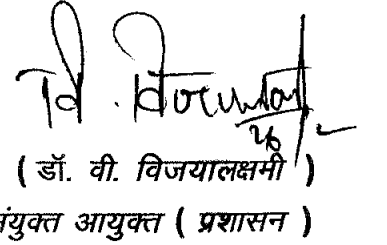 ( डॉ. वी. विजयालक्ष्मी )
संयुक्त आयुक्त ( प्रशासन )